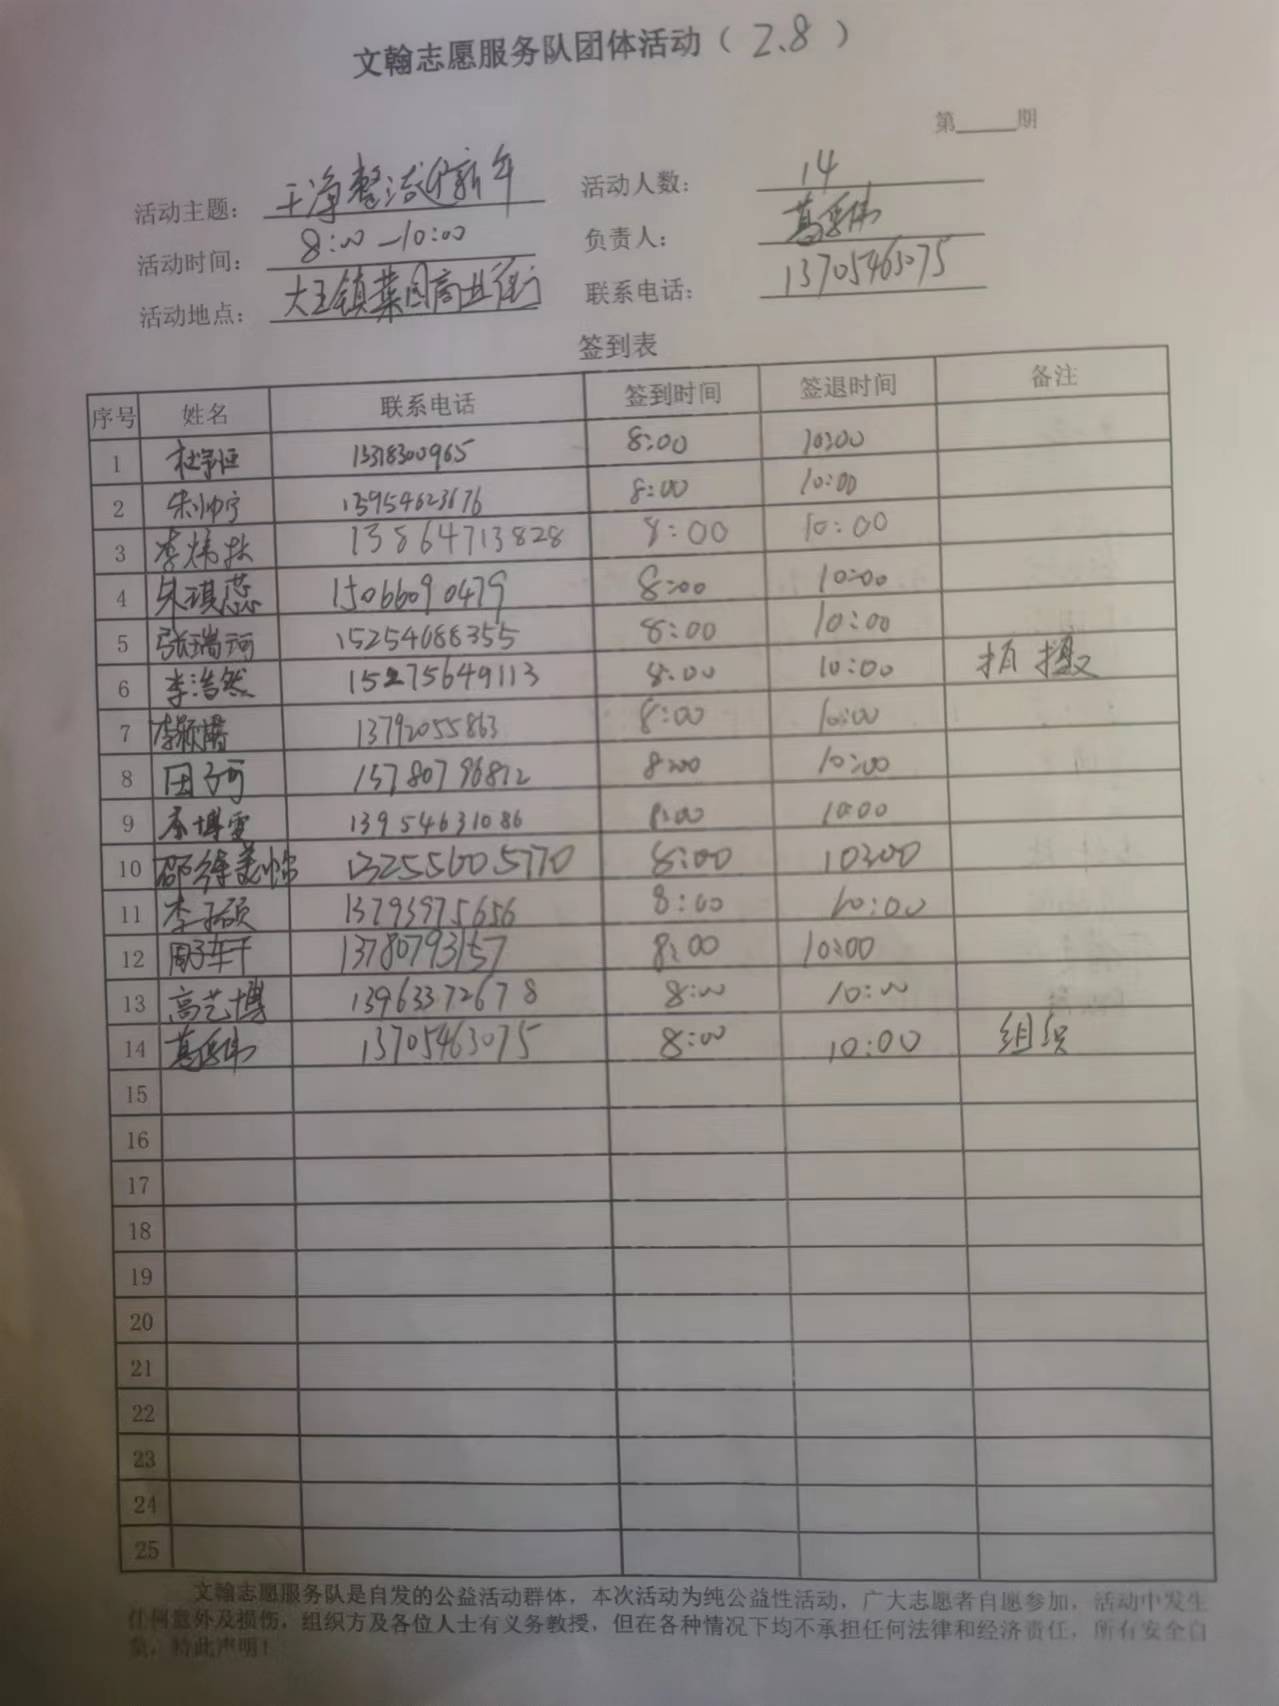 文翰志愿服务队团体活动（2.8）
第____期
活动主题：干净整洁迎新年 活动人数：14
活动时间：8:00-10:00 负责人：葛
活动地点：大王镇菜园商业街 联系电话：13705463075
签到表
序号 姓名 联系电话 签到时间 签退时间 备注
1 8:00 10:00
2 朱帅宁 13954623676 8:00 10:00
3 李炜 13864713828 8:00 10:00
4 朱琪蕊 15066090479 8:00 10:00
5 张瑞珂 15254688355 8:00 10:00
6 李浩然 15275649113 8:00 10:00 拍摄
7 李颖 13792055863 8:00 10:00
8 田子河 8:00 10:00
9 博雯 13954631086 8:00 10:00
10 邵徐美 8:00 10:00
11 李子硕 13793975656 8:00 10:00
12 周子轩 13780793157 8:00 10:00
13 高艺博 13963372678 8:00 10:00
14 葛 13705463075 8:00 10:00 组织
15
16
17
18
19
20
21
22
23
24
25
文翰志愿服务队是自发的公益活动群体，本次活动为纯公益性活动，广大志愿者自愿参加，活动中发生
任何意外及损伤，组织方及各位人士有义务教授，但在各种情况下均不承担任何法律和经济责任，所有安全自
负，特此声明！